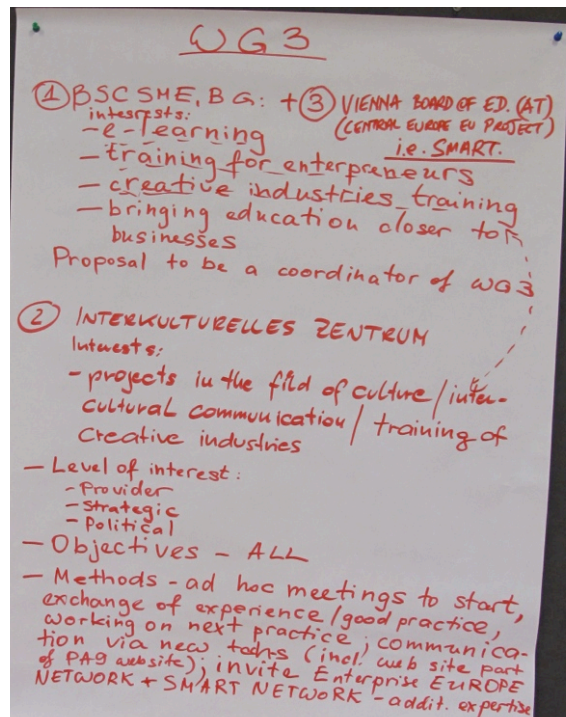 WG3
① BSC SME, BG: + ③ VIENNA BOARD OF ED. (AT)
(CENTRAL EUROPE EU PROJECT)
i.e. SMART.
interests:
- e-learning
- training for enterpreneurs
- creative industries training
- bringing education closer to
businesses
Proposal to be a coordinator of WG3
② INTERKULTURELLES ZENTRUM
Interests:
- projects in the fild of culture/inter-
cultural communication/ training of
creative industries
- Level of interest:
- Provider
- Strategic
- Political
- Objectives - ALL
- Methods - ad hoc meetings to start,
exchange of experience/good practice,
working on next practice, communica-
tion via new (incl. web site part
of PA9 website); invite Enterprise EUROPE
NETWORK + SMART NETWORK - addit. expertise